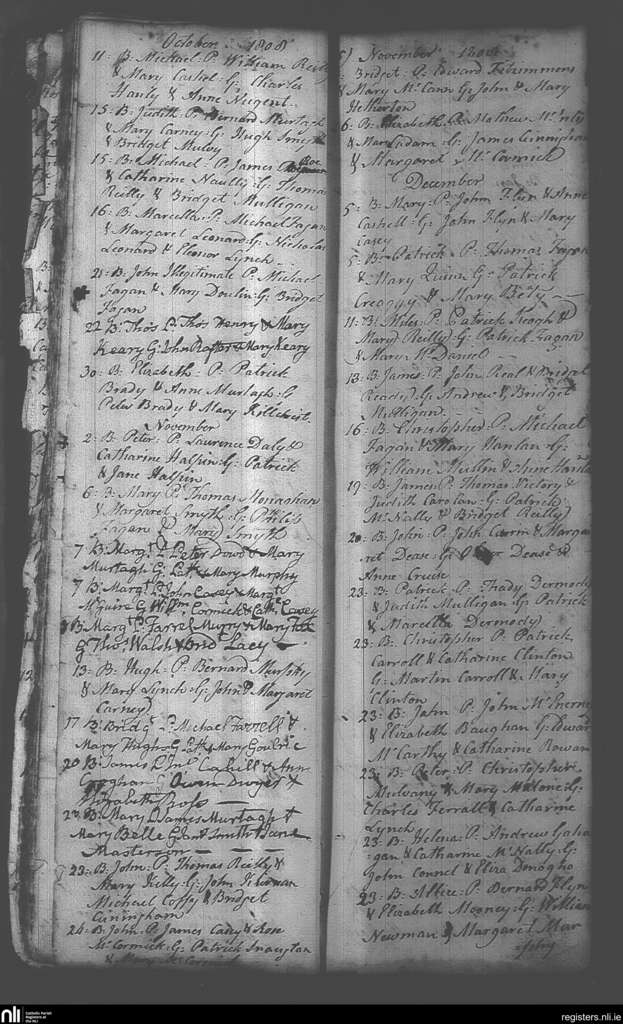 October 1808
11: B: Michael: P: William Reilly
& Mary Cashel: G: Charles
Hanly & Anne Nugent.
15: B: Judith: P: Bernard Murtagh
& Mary Carney: G: Hugh Smyth
& Bridget
15: B: Michael: P: James Roe
& Catharine Naully: G: Thomas
Reilly & Bridget Mulligan
16: B: Marcella: P: Michael Fagan
& Margaret Leonard: G: Nicholas
Leonard & Elenor Lynch
21: B: John Illegitimate P: Michael
Fagan & Mary Doulin: G: Bridget
Fagan
22 B: Thos P: Thos Henry & Mary
Keary G: John & Mary Keary
30: B: Elizabeth: P: Patrick
Brady & Anne Murtagh: G:
Peter Brady & Mary
November
2: B: Peter: P: Laurence Daly &
Catharine Halpin: G: Patrick
& Jane Halpin
6: B: Mary P: Thomas Monaghan
& Margaret Smyth: G: Philip
Fagan & Mary Smyth
7 B: Margt: P: Peter Dowd & Mary
Murtagh G: Patk: & Mary Murphy
7 B: Margt: P: John Casey & Margt:
Mguire G: Wm: Cormick & Cathe: Casey
B: Margt: P: Farrel Murry & Mary
G: Thos: Walsh & Brid: Lacy
13: B: Hugh: P: Bernard Murtagh
& Mary Lynch: G: John & Margaret
Carney
17 B: Bridgt: P: Michael Farrell &
Mary G: Patk & Mary
20 B: James P: Jno: Cahill & Ann
Geoghan G: Owen Dwyer &
Elizabeth
23 B: Mary P: James Murtagh &
Mary Belle G: Smith & Jane
Masterson
23: B: John: P: Thomas Reilly &
Mary Kelly: G: John Kiernan
Michael Coffy & Bridget
Cuningham
24: B: John: P: James Casey & Rose
McCormick: G: Patrick Naughton
&
November 1808
Bridget: P: Edward Fitsimmons
& Mary McCann G: John & Mary
Hetherton
6: B: Elizabeth: P: Mathew McEnty
& Mary Adam: G: James Cuningham
& Margaret McCormick
December
5: B: Mary: P: John Flyn & Anne
Cashell: G: John Flyn & Mary
Casey
5: B: Patrick: P: Thomas Fagan
& Mary Quin: G: Patrick
Creaguy & Mary Bety
11: B: Miles: P: Patrick Keogh &
Mary Reilly: G: Patrick Fagan
& Mary McDaniel
13: B: James: P: John Real & Bridget
Ready: G: Andrew & Bridget
Mulligan
16: B: Christopher: P: Michael
Fagan & Mary Hanlan: G:
William Mullen & Anne
19: B: James P: Thomas Victory &
Judith Carolan: G: Patrick
McNally & Bridget Reilly
20: B: John: P: John & Marga
ret Dease: G: Dease &
Anne Cruise
23: B: Patrick: P: Thady Dermody
& Judith Mulligan: G: Patrick
& Marcella Dermody
23: B: Christopher P: Patrick
Carroll & Catharine Clinton
G: Martin Carroll & Mary
Clinton
23: B: John P: John McEnerne
& Elizabeth Baughan G: Edward
McCarthy & Catharine Rowan
23: B: Peter: P: Christopher
Mulvany & Mary Malone: G:
Charles Ferrall & Catharine
Lynch
23: B: Helena: P: Andrew Gaha
gan & Catharine McNally: G:
John Connel & Eliza Donogho
23: B: Allice: P: Bernard Flyn
& Elizabeth Mooney: G: William
Newman & Margaret Mur
phy
nli
Catholic Parish
Registers at
the NLI
registers.nli.ie